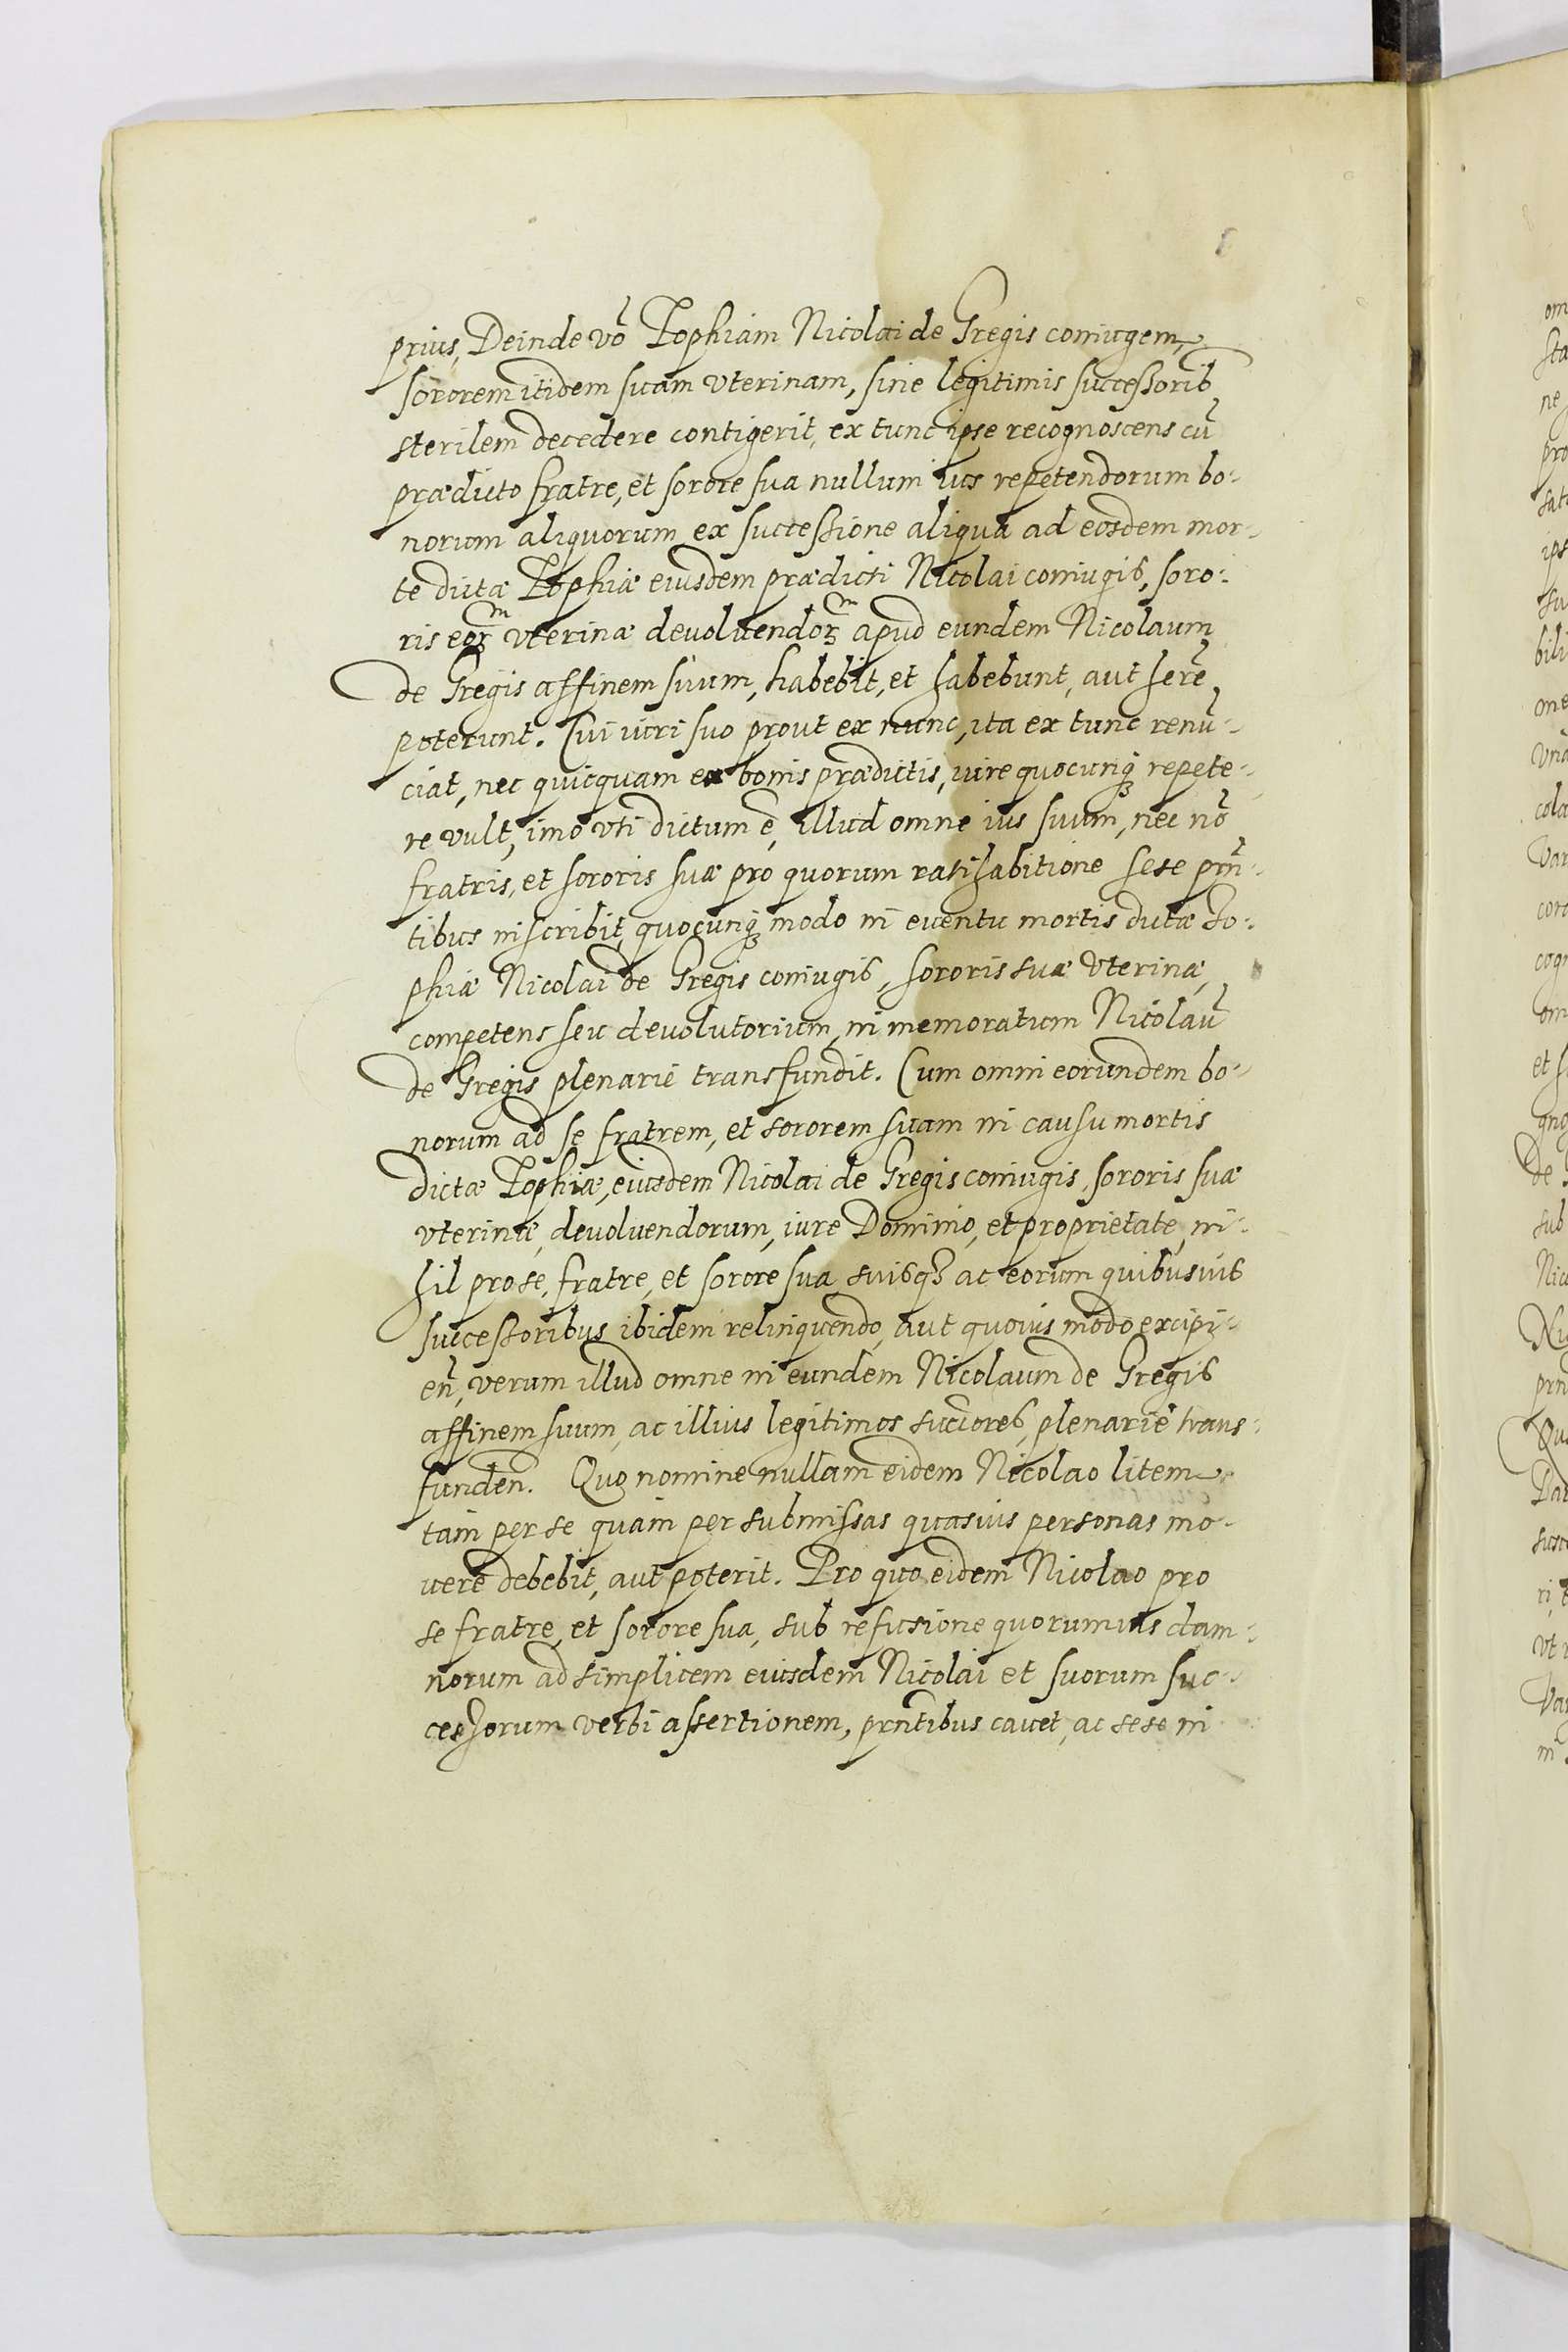 prius, Deinde vō Zophiam Nicolai de Gregis coniugem,
sororem itidem suam vterinam, sine legitimis successorib
sterilem decedere contigerit, ex tunc ipse recognoscens cū
prædicto fratre, et sorore sua nullum ius repetendorum bo-
norum aliquorum ex successione aliqua ad eosdem mor-
te dictæ Zophiæ eiusdem prædicti Nicolai coniugis, soro-
ris eoꝝm vterinæ deuoluendoꝝm apud eundem Nicolaum
de Gregis affinem suum, habebit, et habebunt, aut here
poterunt. Cui iuri suo prout ex nunc, ita ex tunc renū-
ciat, nec quicquam ex bonis prædictis, iure quocunqꝫ repete-
re vult, imo vti dictum ē, illud omne ius suum, nec nō
fratris, et sororis suæ pro quorum ratihabitione sese prñ-
tibus inscribit, quocunqꝫ modo in euentu mortis dictæ Zo-
phiæ Nicolai de Gregis coniugis, sororis suæ vterinæ,
competens seu deuolutorium, in memoratum Nicolaū
de Gregis plenarie transfundit. Cum omni eorundem bo-
norum ad se fratrem, et sororem suam in causu mortis
dictæ Zophiæ, eiusdem Nicolai de Gregis coniugis, sororis suæ
vterinæ, deuoluendorum, iure Dominio, et proprietate, ni-
hil pro se, fratre, et sorore sua, suisqꝫ ac eorum quibusuis
successoribus ibidem relinquendo, aut quouis modo excipi-
eñ, verum illud omne in eundem Nicolaum de Gregis
affinem suum, ac illius legitimos succores, plenarie trans-
funden. Quo nomine nullam eidem Nicolao litem
tam per se quam per submissas quasuis personas mo-
uere debebit, aut poterit. Pro quo eidem Nicolao pro
se fratre, et sorore sua, sub refusione quorumuis dam-
norum ad simplicem eiusdem Nicolai et suorum suc-
cessorum verbi assertionem, prñtibus cauet, ac sese in